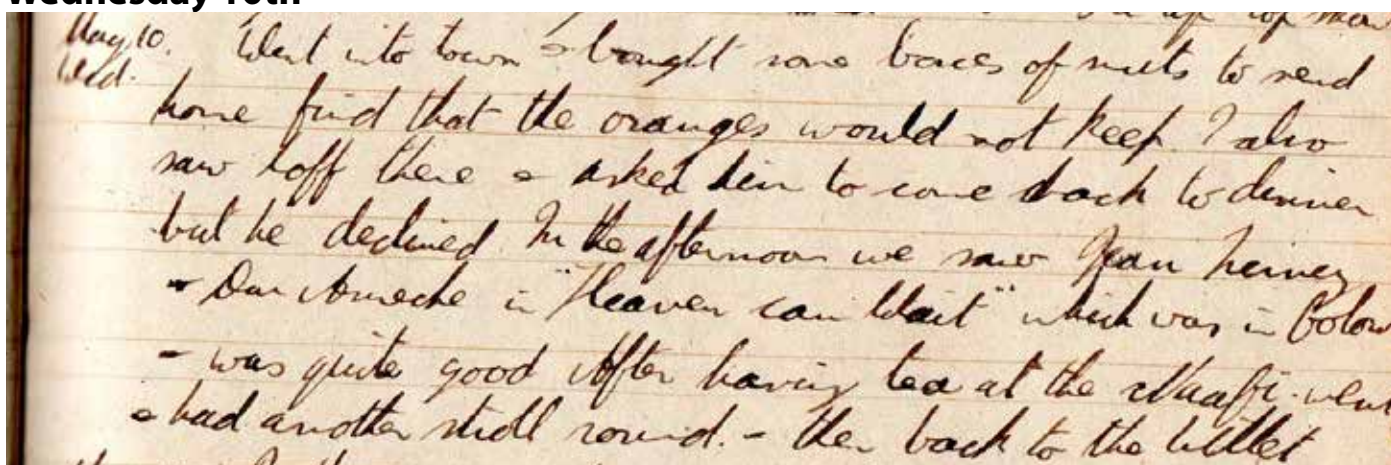 Wednesday 10th
May 10. Went into town & bought some boxes of nuts to send
Wed.
home find that the oranges would not keep. I also
saw Hoff there & asked him to come back to dinner
but he declined. In the afternoon we saw Jean Tierney
& Don Ameche in "Heaven can Wait" which was in Colour
& was quite good After having tea at the Naafi. went
& had another stroll round. - then back to the billet